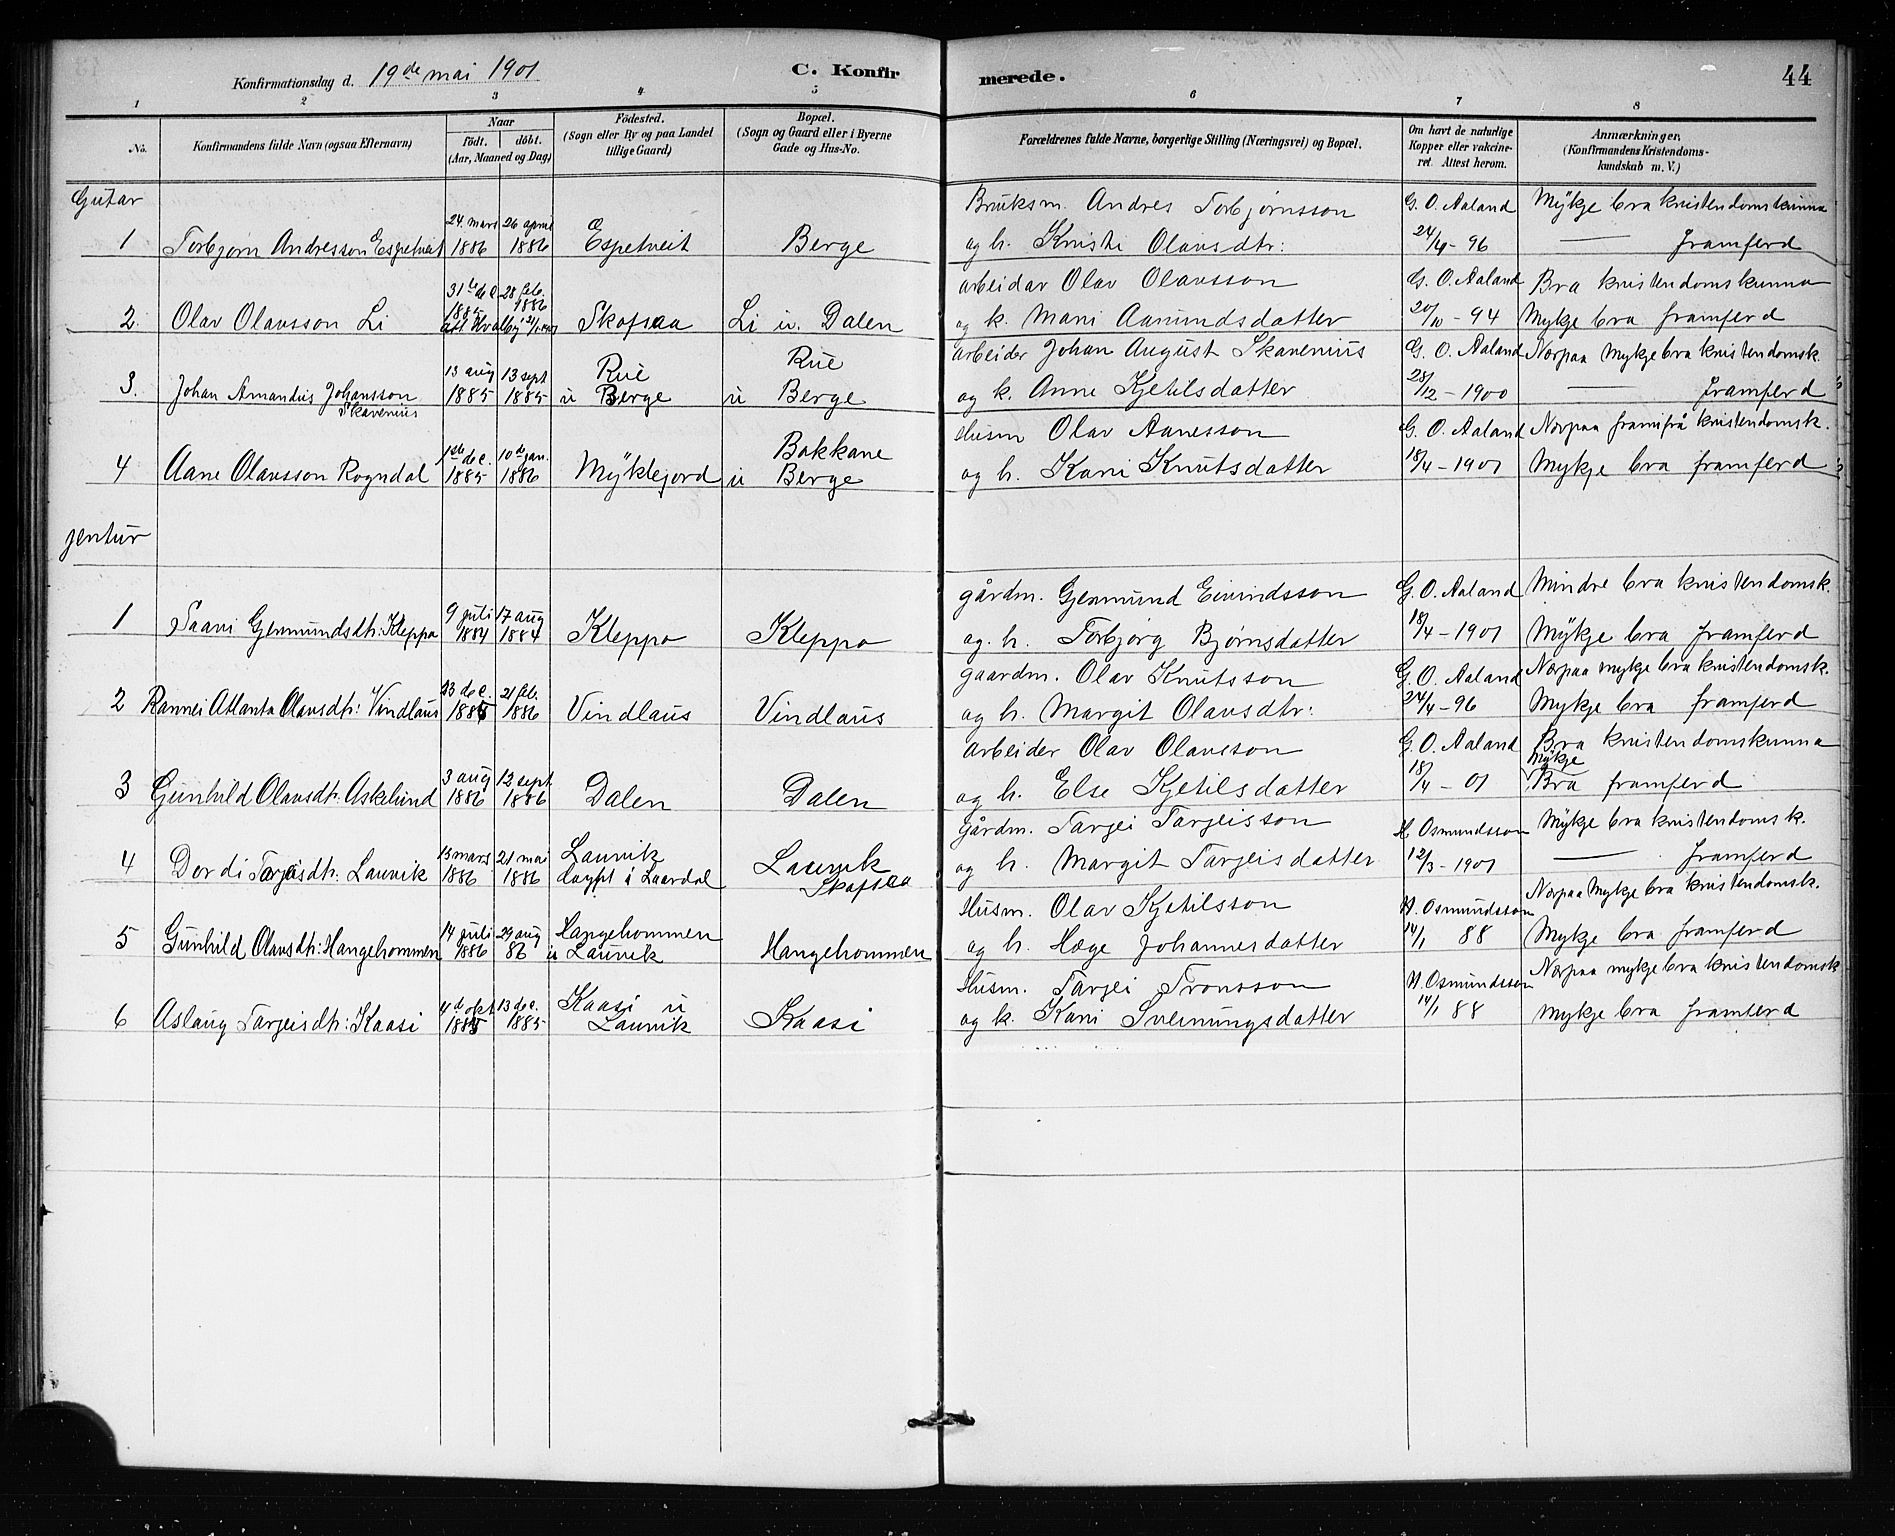 Konfirmationsdag d. 19de mai 1901
C. Konfirmerede.
44
1 2 3 4 5 6 7 8
No.
Konfirmandens fulde Navn (ogsaa Efternavn)
Naar
födt. döbt.
(Aar, Maaned og Dag)
Födested.
(Sogn eller By og paa Landet
tillige Gaard.)
Bopæl.
(Sogn og Gaard eller i Byerne
Gade og Hus-No.
Forældrenes fulde Navne, borgerlige Stilling (Næringsvei) og Bopæl.
Om havt de naturlige
Kopper eller vakcine-
ret. Attest herom.
Anmærkninger.
(Konfirmandens Kristendoms-
kundskab m. V.)
Gutar
1 Torbjørn Andresson Espetveit 24 mars 1886 26 april 1886 Espetveit Berge
Bruksm. Andres Torbjørnsson G. O. Aaland Mykje bra kristendomskunna
og h. Kristi Olavsdtr: 24/4-96 — framferd
2. Olav Olavsson Li 31te dec. 1885 28 feb. 1886 Skafsaa Li u. Dalen
arbeidar Olav Olavsson G. O. Aaland Bra kristendomskunna
og k. Mari Aamundsdatter 20/10-94 Mykje bra framferd
3. Johan Amandus Johansson Skavenius 13 aug 1885 13 sept 1885 Rue u Berge Rue u Berge
arbeider Johan August Skavenius G. O. Aaland Norpaa mykje bra kristendomsk.
og k. Anne Kjetilsdatter 28/12-1900 — framferd
4 Aane Olavsson Rogndal 1ste dec. 1885 10de jan. 1886 Myklejord Bakkane u Berge
Husm Olav Aanesson G. O. Aaland Norpaa framifrå kristendomsk.
og h. Kari Knutsdatter 18/4-1901 Mykje bra framferd
jentur
1 Saavi Gjermundsdtr: Kleppo 9 juli 1884 17 aug 1884 Kleppo Kleppo
gårdm. Gjermund Eivindsson G. O. Aaland Mindre bra kristendomsk.
og. h. Torbjørg Bjørnsdatter 18/4-1901 Mykje bra framferd
2 Rannei Atlanta Olavsdtr: Vindlaus 23 dec. 1885 21 feb. 1886 Vindlaus Vindlaus
gaardm. Olav Knutsson G. O. Aaland Norpaa mykje bra kristendomsk.
og h. Margit Olavsdtr: 24/4-96 Mykje bra framferd
3 Gunhild Olavsdtr. Askelund 3 aug 1886 12 sept 1886 Dalen Dalen
Arbeider Olav Olavsson G. O. Aaland Bra kristendomskunna
og h. Else Kjetilsdatter 18/4-01 mykje Bra framferd
4 Dordi Targjeisdtr: Lauvik 13 mars 1886 21 mai 1886 Lauvik døypt i Laardal Lauvik Skafsaa
Gårdm. Targei Targeisson H. Osmundsson Mykje bra kristendomsk.
og h. Margit Targeisdatter 12/3-1901 — framferd
5 Gunhild Olavsdtr: Hangehommen 14 juli 1886 29 aug 86 Hangehommen u Lauvik Hangehommen
Husm. Olav Kjetilsson H. Osmundsson Norpaa mykje bra kristendomsk.
og h. Hæge Johannesdatter 14/1 88 Mykje bra framferd
6 Aslaug Targeisdtr: Kaasi 4de okt 1885 13 dec. 1885 Kaasi u Lauvik Kaasi
Husm. Targei Tronsson H. Osmundsson Norpaa mykje bra kristendomsk
og k. Kari Sveinungsdatter 14/1 88 mykje bra framferd